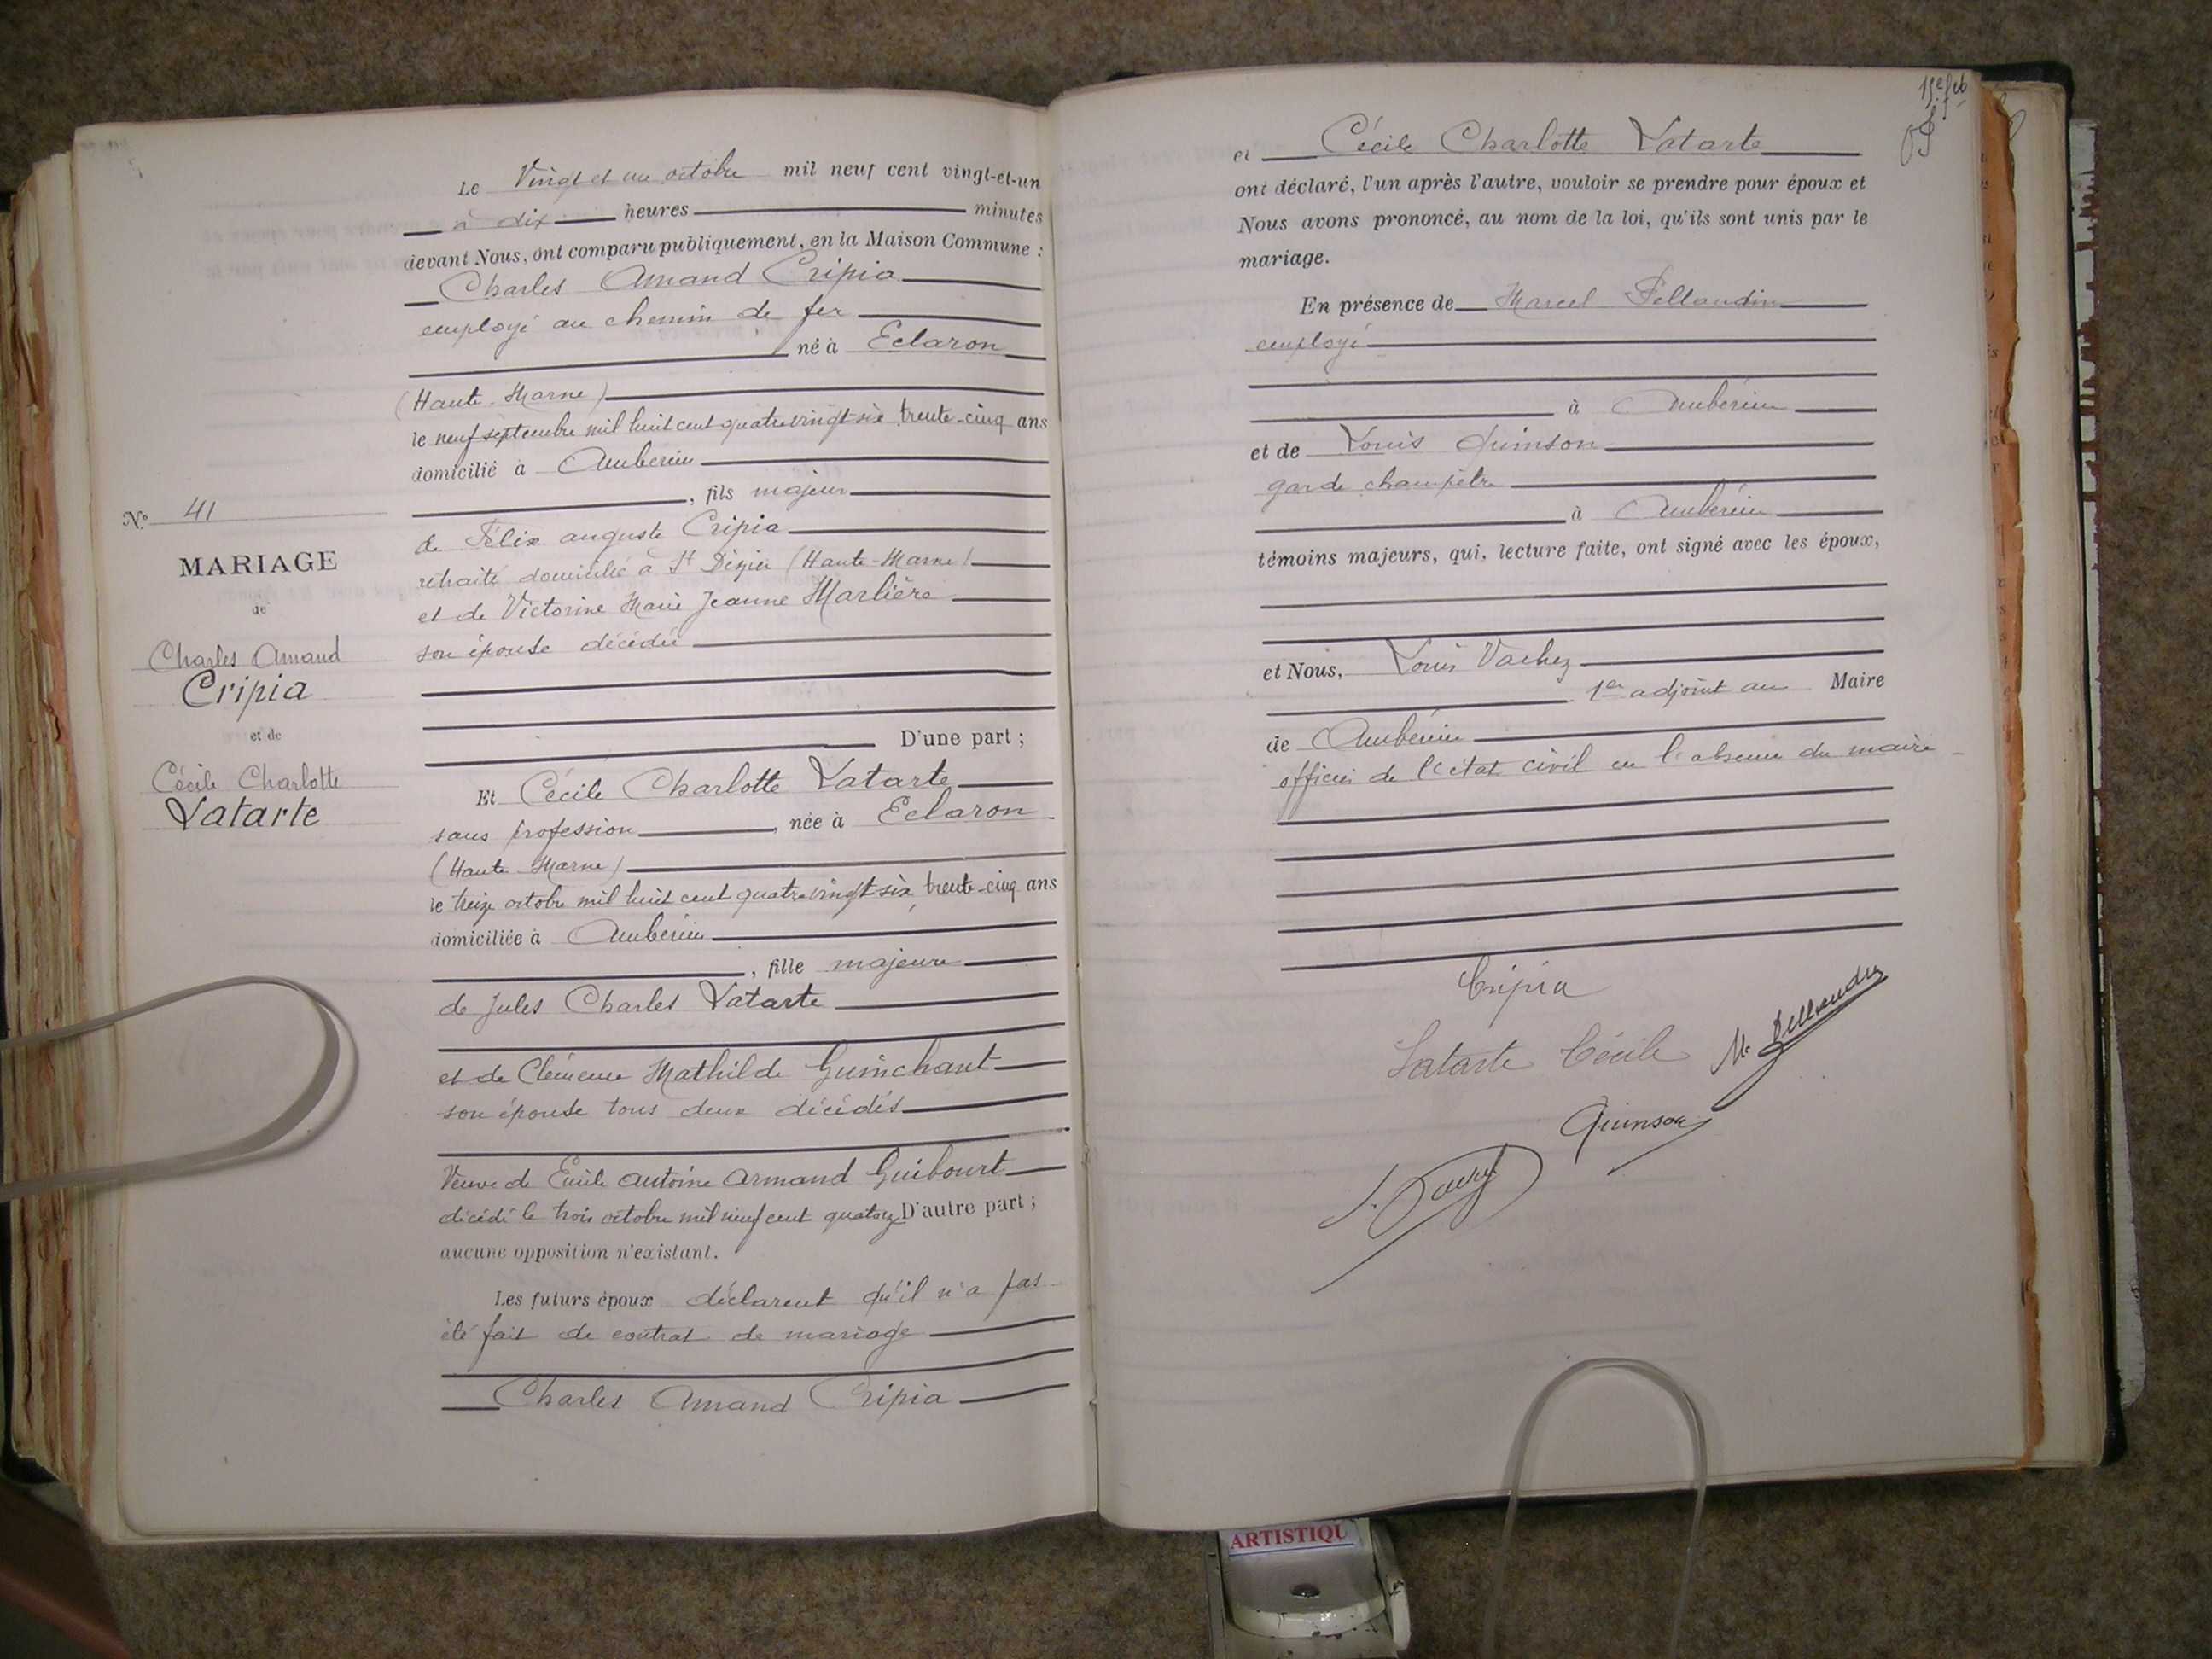 Le Vingt et un octobre mil neuf cent vingt-et-un
à dix heures minutes
devant Nous, ont comparu publiquement, en la Maison Commune :
Charles Amand Cripia
employé au chemin de fer
né à Eclaron
(Haute-Marne)
le neuf septembre mil huit cent quatre vingt six, trente-cinq ans
domicilié à Ambérieu
, fils majeur
de Félix auguste Cripia
retraité domicilié à St Dizier (Haute-Marne)
et de Victorine Marie Jeanne Marlière
son épouse décédée
D'une part ;
N° 41
MARIAGE
de
Charles Amand
Cripia
et de
Cécile Charlotte
Latarte
Et Cécile Charlotte Latarte
sans profession, née à Eclaron
(Haute-Marne)
le treize octobre mil huit cent quatre vingt six, trente-cinq ans
domiciliée à Ambérieu
, fille majeure
de Jules Charles Latarte
et de Clémence Mathilde Guinchant
son épouse tous deux décédés
Veuve de Emile antoine armand Guibourt
décédé le trois octobre mil neuf cent quatorze D'autre part ;
aucune opposition n'existant.
Les futurs époux déclarent qu'il n'a pas
été fait de contrat de mariage
Charles Amand Cripia
et Cécile Charlotte Latarte
ont déclaré, l'un après l'autre, vouloir se prendre pour époux et
Nous avons prononcé, au nom de la loi, qu'ils sont unis par le
mariage.
En présence de Marcel Pellaudin
employé
à Ambérieu
et de Louis Quinson
garde champêtre
à Ambérieu
témoins majeurs, qui, lecture faite, ont signé avec les époux,
et Nous, Louis Vachez
1er adjoint au Maire
de Ambérieu
officier de l'état civil en l'absence du maire
Cripia
Latarte Cécile
Quinson
ARTISTIQU